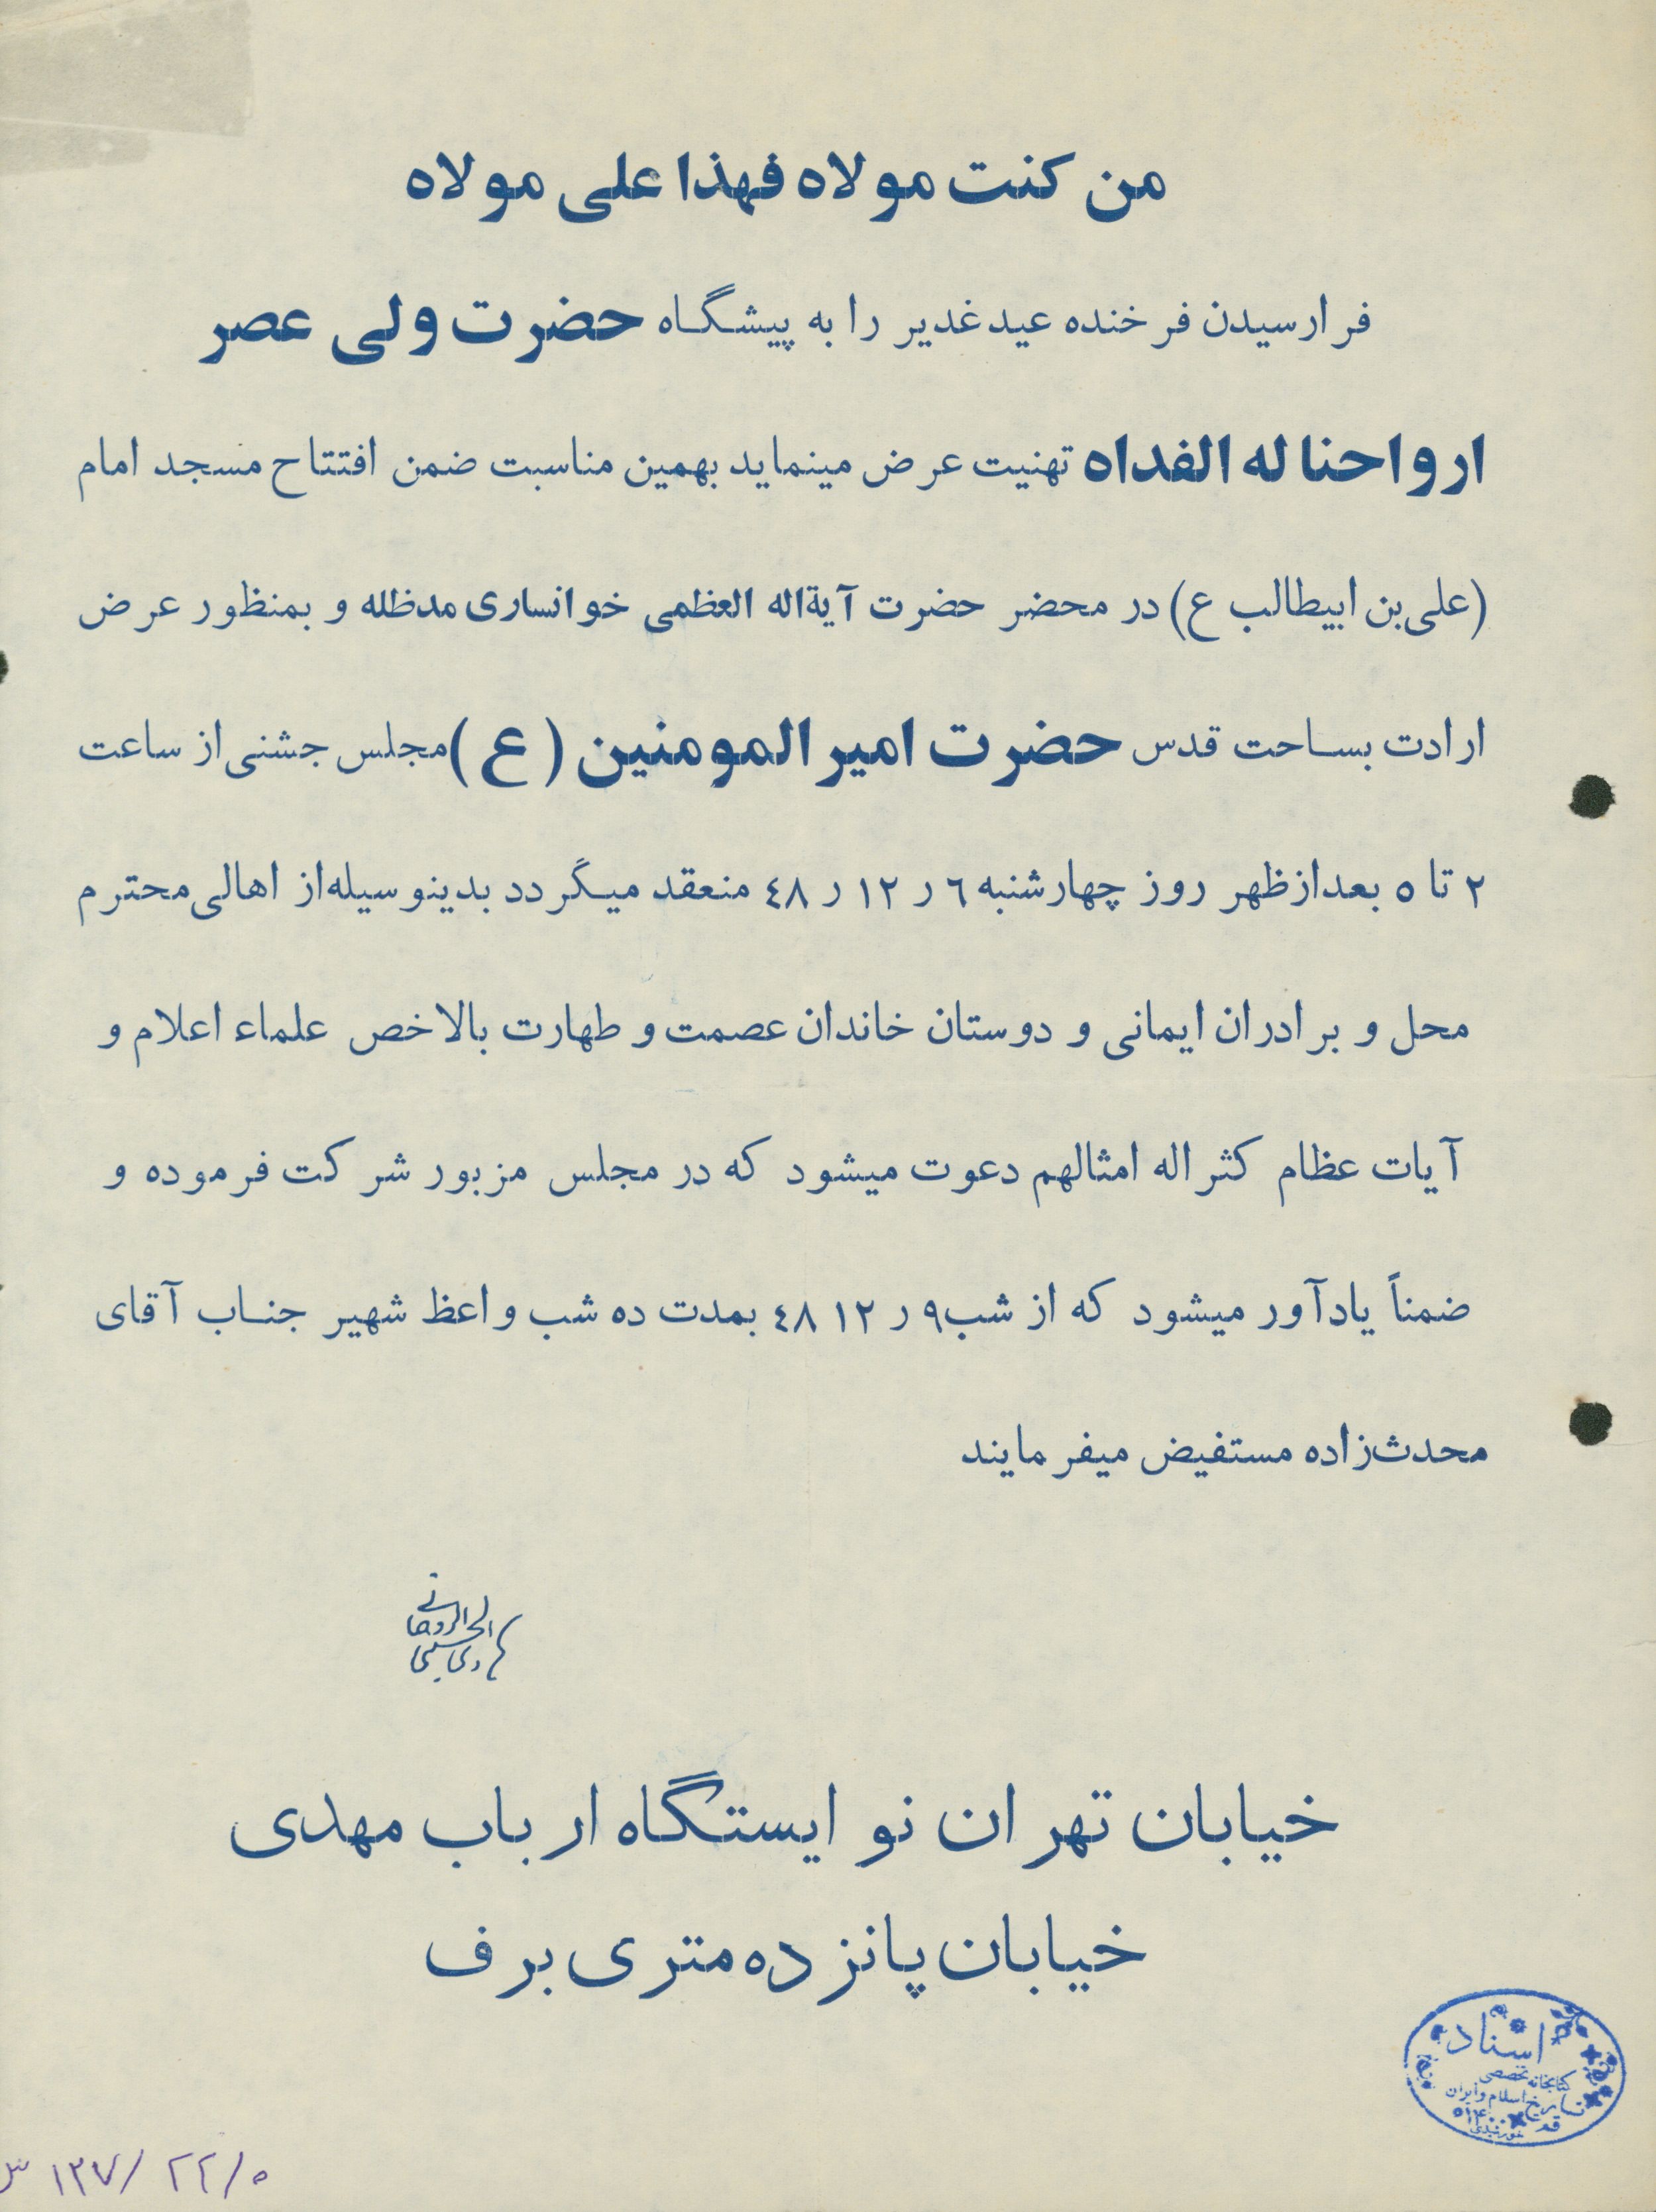 من كنت مولاه فهذا علی مولاه
فرارسیدن فرخنده عید غدیر را به پیشگاه حضرت ولی عصر
ارواحنا له الفداه تهنیت عرض مینماید بهمین مناسبت ضمن افتتاح مسجد امام
(علی بن ابیطالب ع) در محضر حضرت آیة‌اله العظمی خوانساری مدظله و بمنظور عرض
ارادت بساحت قدس حضرت امیر المومنین (ع) مجلس جشنی از ساعت
۲ تا ٥ بعدازظهر روز چهارشنبه ٦ ر ۱۲ ر ٤۸ منعقد میگردد بدینوسیله از اهالی محترم
محل و برادران ایمانی و دوستان خاندان عصمت و طهارت بالاخص علماء اعلام و
آیات عظام کثر اله امثالهم دعوت میشود که در مجلس مزبور شرکت فرموده و
ضمناً یادآور میشود که از شب ۹ ر ۱۲ ٤۸ بمدت ده شب واعظ شهیر جناب آقای
محدث‌زاده مستفیض میفرمایند
خیابان تهران نو ایستگاه ارباب مهدی
خیابان پانزده متری برف
اسناد
کتابخانه تخصصی
تاریخ اسلام و ایران
قم
۱۲۷/۲۲/۰